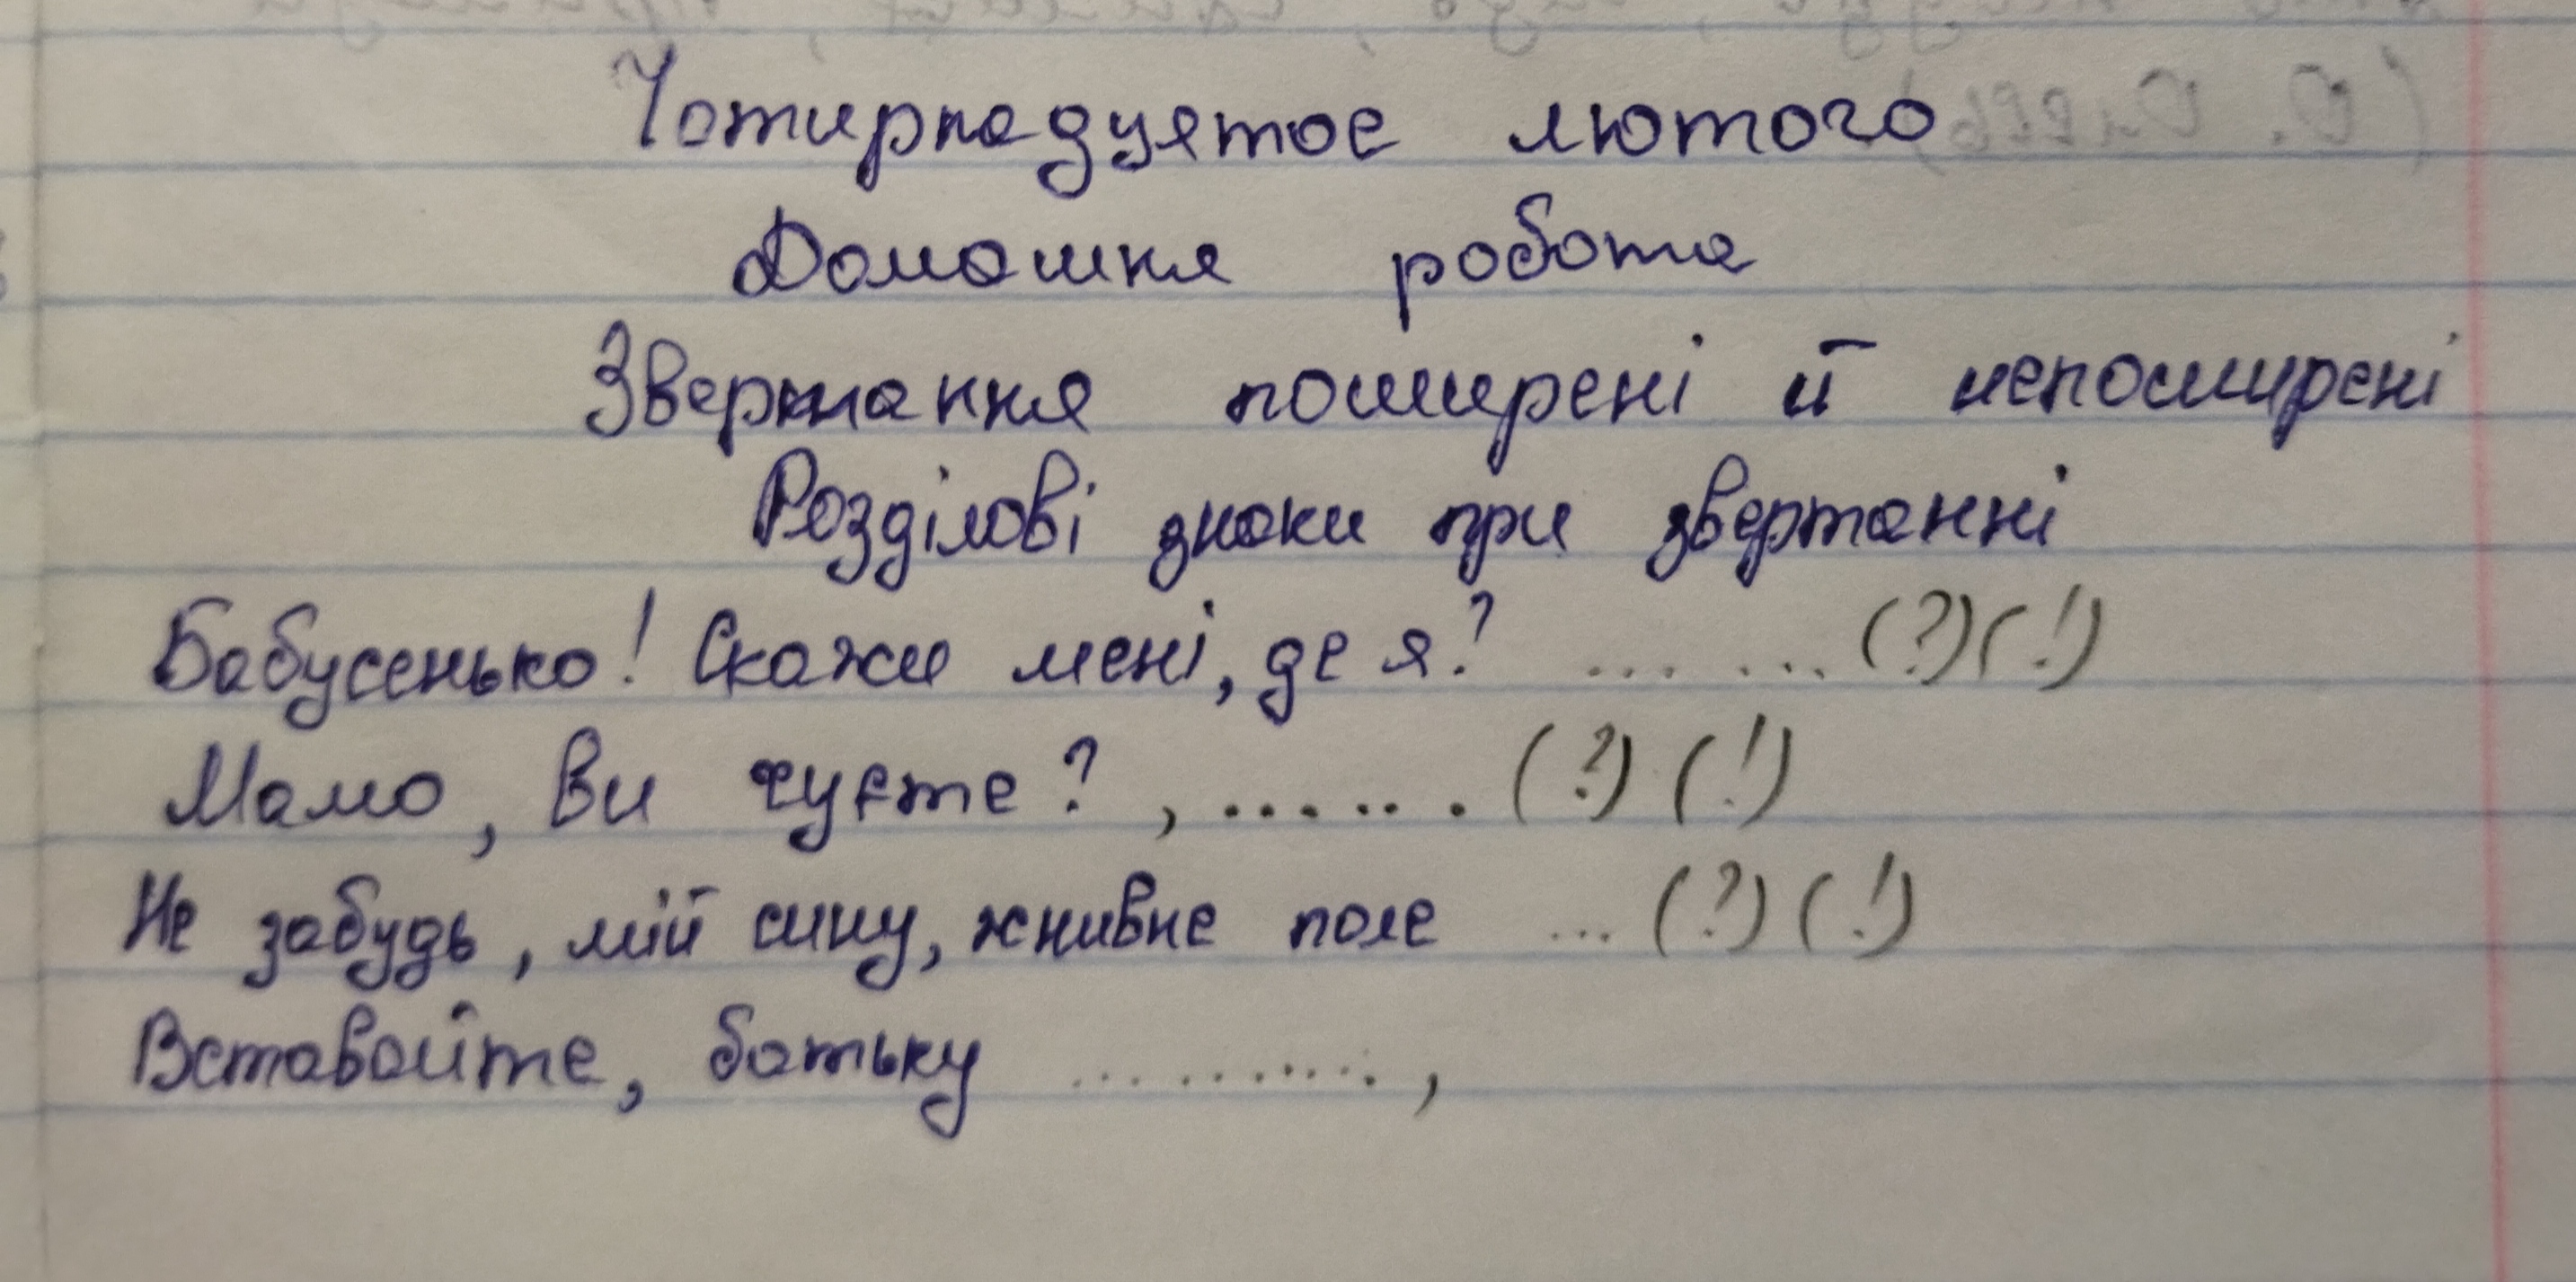 Чотирнадцятое лютого
Домашня робота
Звертання поширені й непоширені
Розділові знаки при звертанні
Бабусенько! Скажи мені, де я? ... ... (?)(!)
Мамо, Ви чуєте? , ....... (?) (!)
Не забудь, мій сину, жнивне поле ... (?) (!)
Вставайте, батьку .......... ,